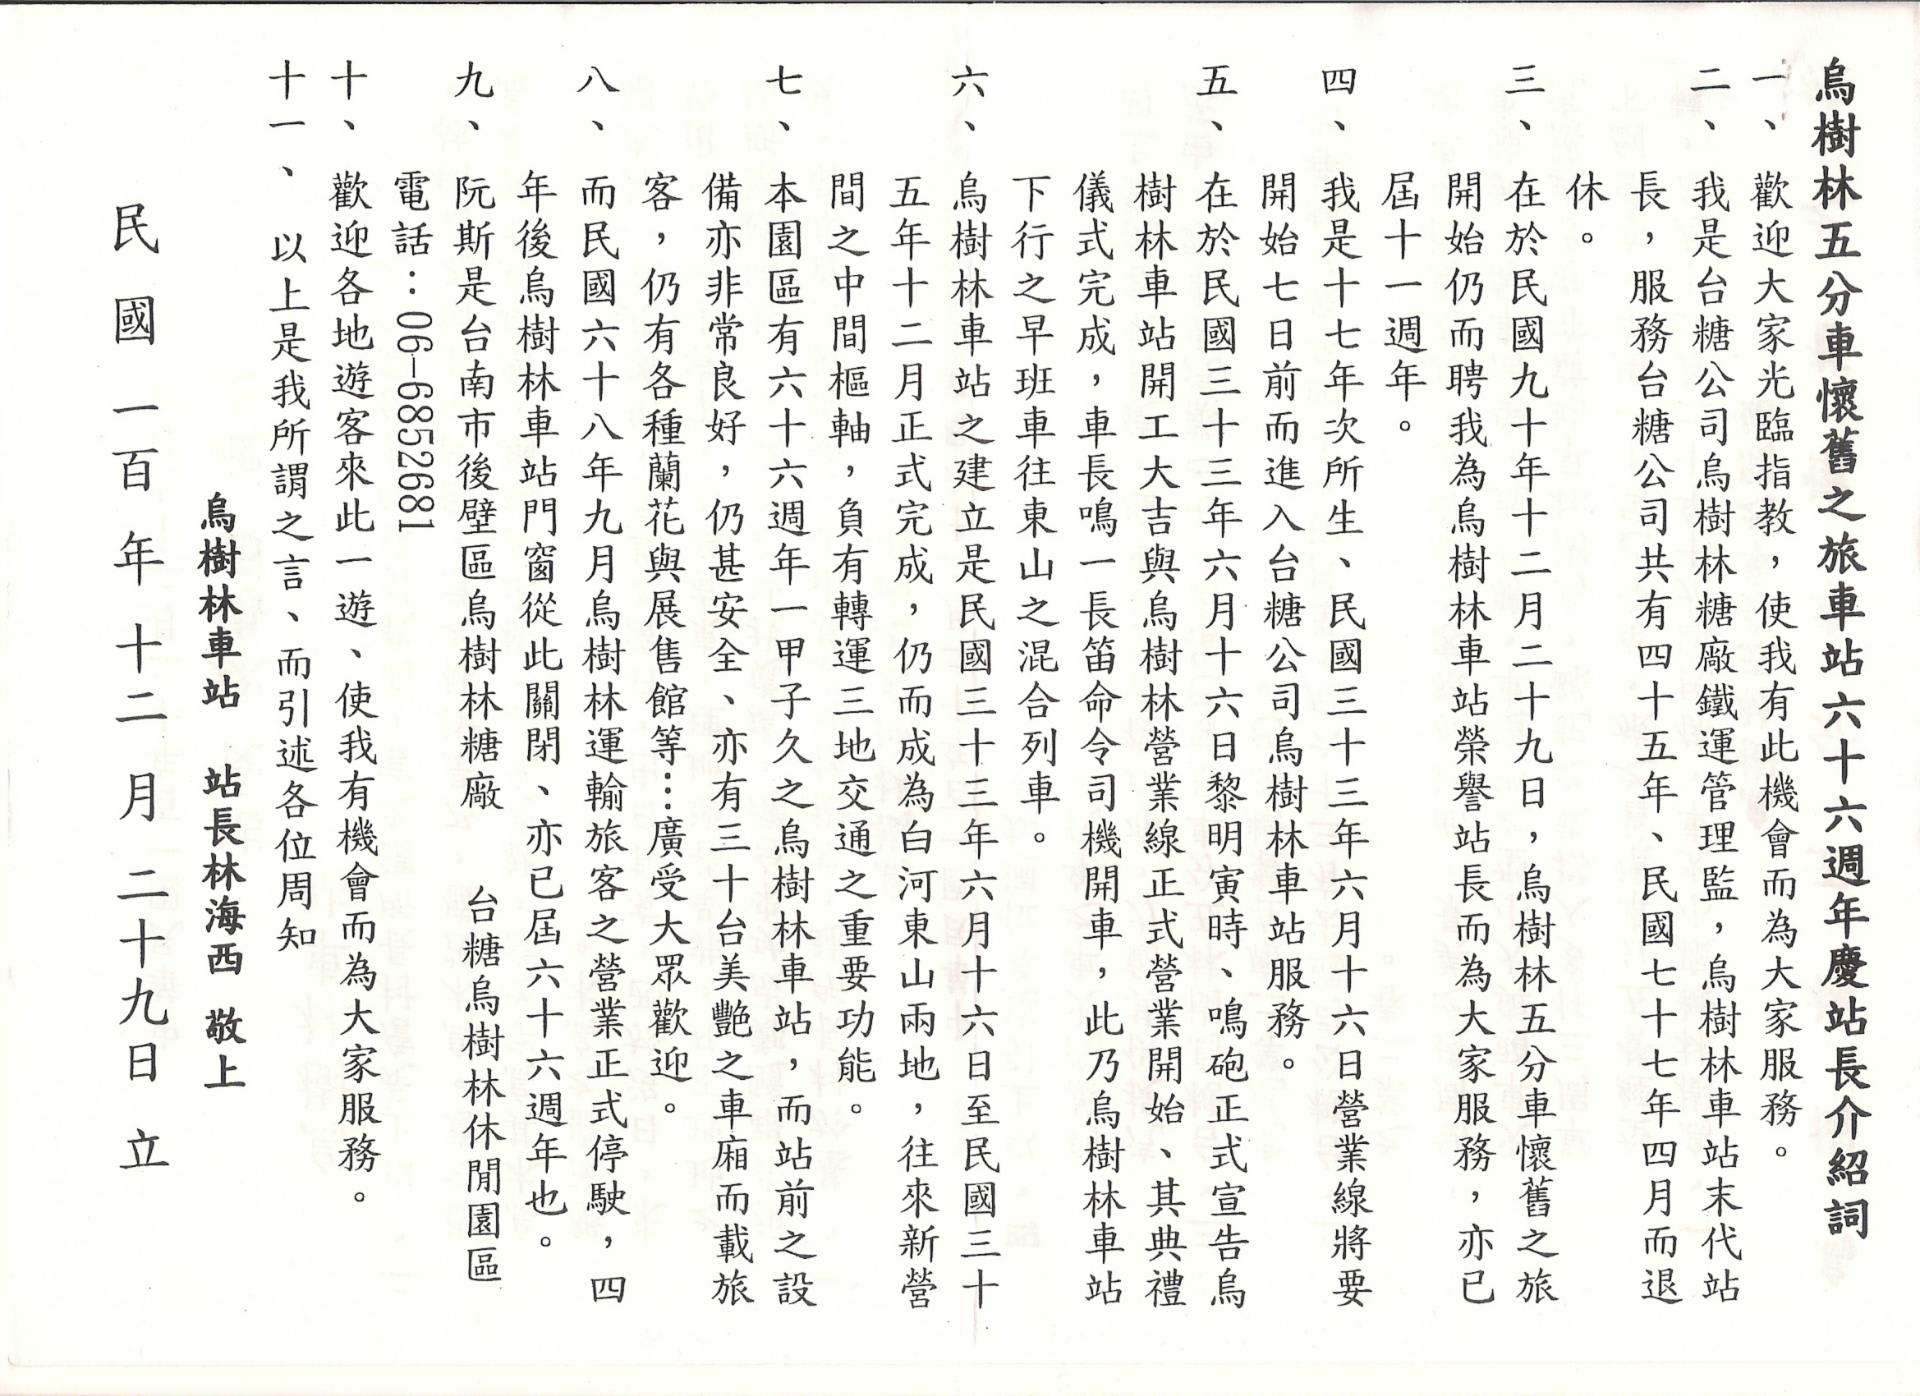 烏樹林五分車懷舊之旅車站六十六週年慶站長介紹詞
一、歡迎大家光臨指教，使我有此機會而為大家服務。
二、我是台糖公司烏樹林糖廠鐵運管理監，烏樹林車站末代站
長，服務台糖公司共有四十五年、民國七十七年四月而退
休。
三、在於民國九十年十二月二十九日，烏樹林五分車懷舊之旅
開始仍而聘我為烏樹林車站榮譽站長而為大家服務，亦已
屆十一週年。
四、我是十七年次所生、民國三十三年六月十六日營業線將要
開始七日前而進入台糖公司烏樹林車站服務。
五、在於民國三十三年六月十六日黎明寅時、鳴砲正式宣告烏
樹林車站開工大吉與烏樹林營業線正式營業開始、其典禮
儀式完成，車長鳴一長笛命令司機開車，此乃烏樹林車站
下行之早班車往東山之混合列車。
六、烏樹林車站之建立是民國三十三年六月十六日至民國三十
五年十二月正式完成，仍而成為白河東山兩地，往來新營
間之中間樞軸，負有轉運三地交通之重要功能。
七、本園區有六十六週年一甲子久之烏樹林車站，而站前之設
備亦非常良好，仍甚安全、亦有三十台美艷之車廂而載旅
客，仍有各種蘭花與展售館等…廣受大眾歡迎。
八、而民國六十八年九月烏樹林運輸旅客之營業正式停駛，四
年後烏樹林車站門窗從此關閉、亦已屆六十六週年也。
九、阮斯是台南市後壁區烏樹林糖廠　台糖烏樹林休閒園區
電話：06-6852681
十、歡迎各地遊客來此一遊、使我有機會而為大家服務。
十一、以上是我所謂之言、而引述各位周知
烏樹林車站　站長林海西 敬上
民國一百年十二月二十九日立